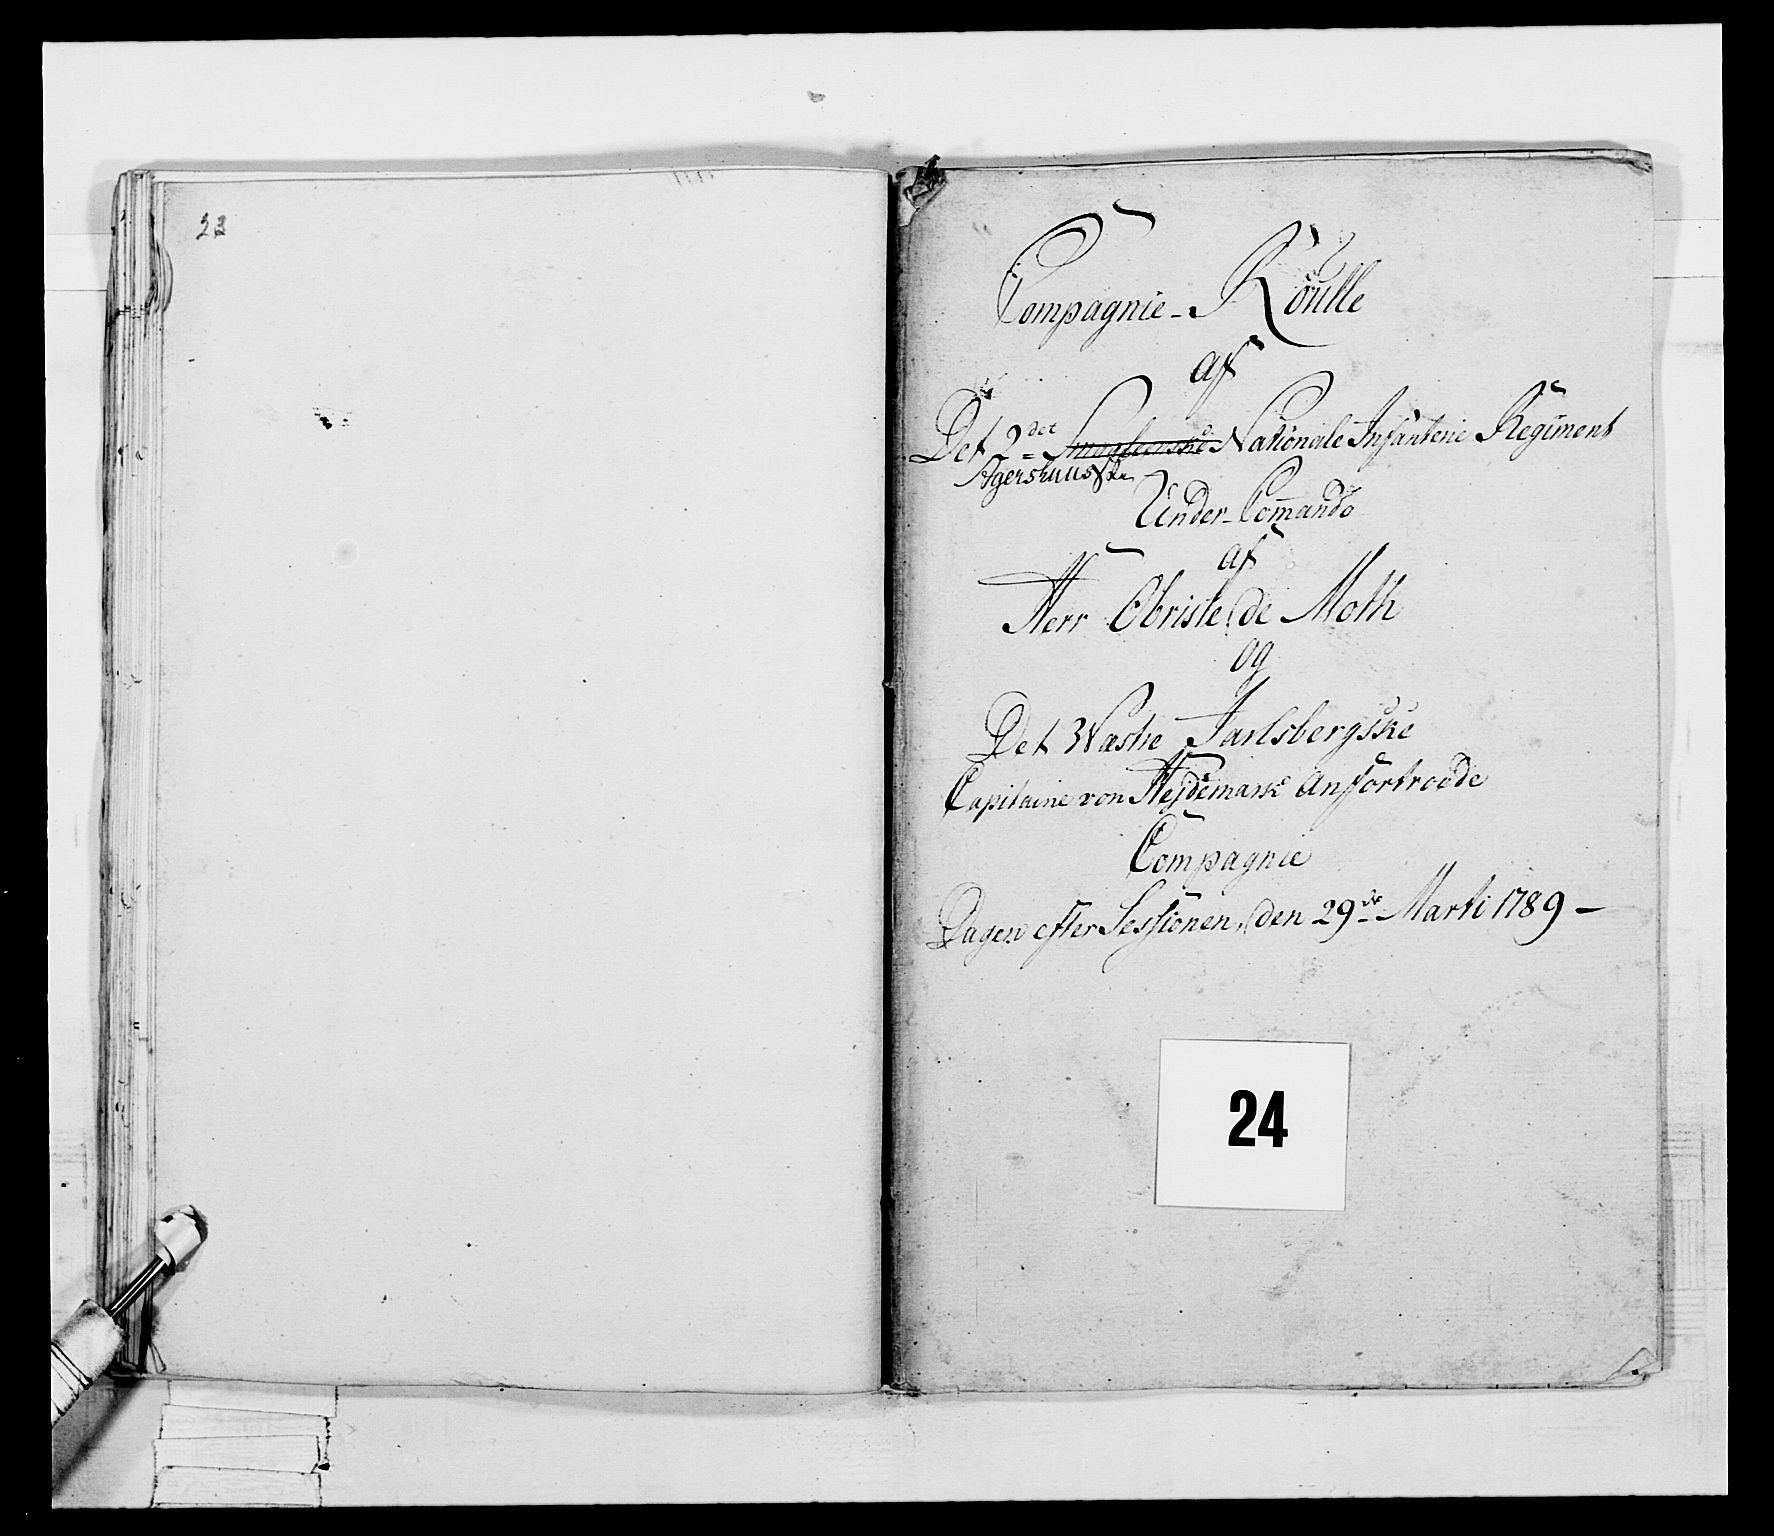 23
Compagnie-Roulle
af
Det 2det Smaaleenske Nationale Infanterie Regiment
Agershuusske
Under-Commando
af
Herr Obriste de Moth
og
Det Wæstre Jarlsbergske
Capitaine von Hejdemark Anfortroede
Compagnie
Dagen efter Sessionen, den 29de Marti 1789 –
24